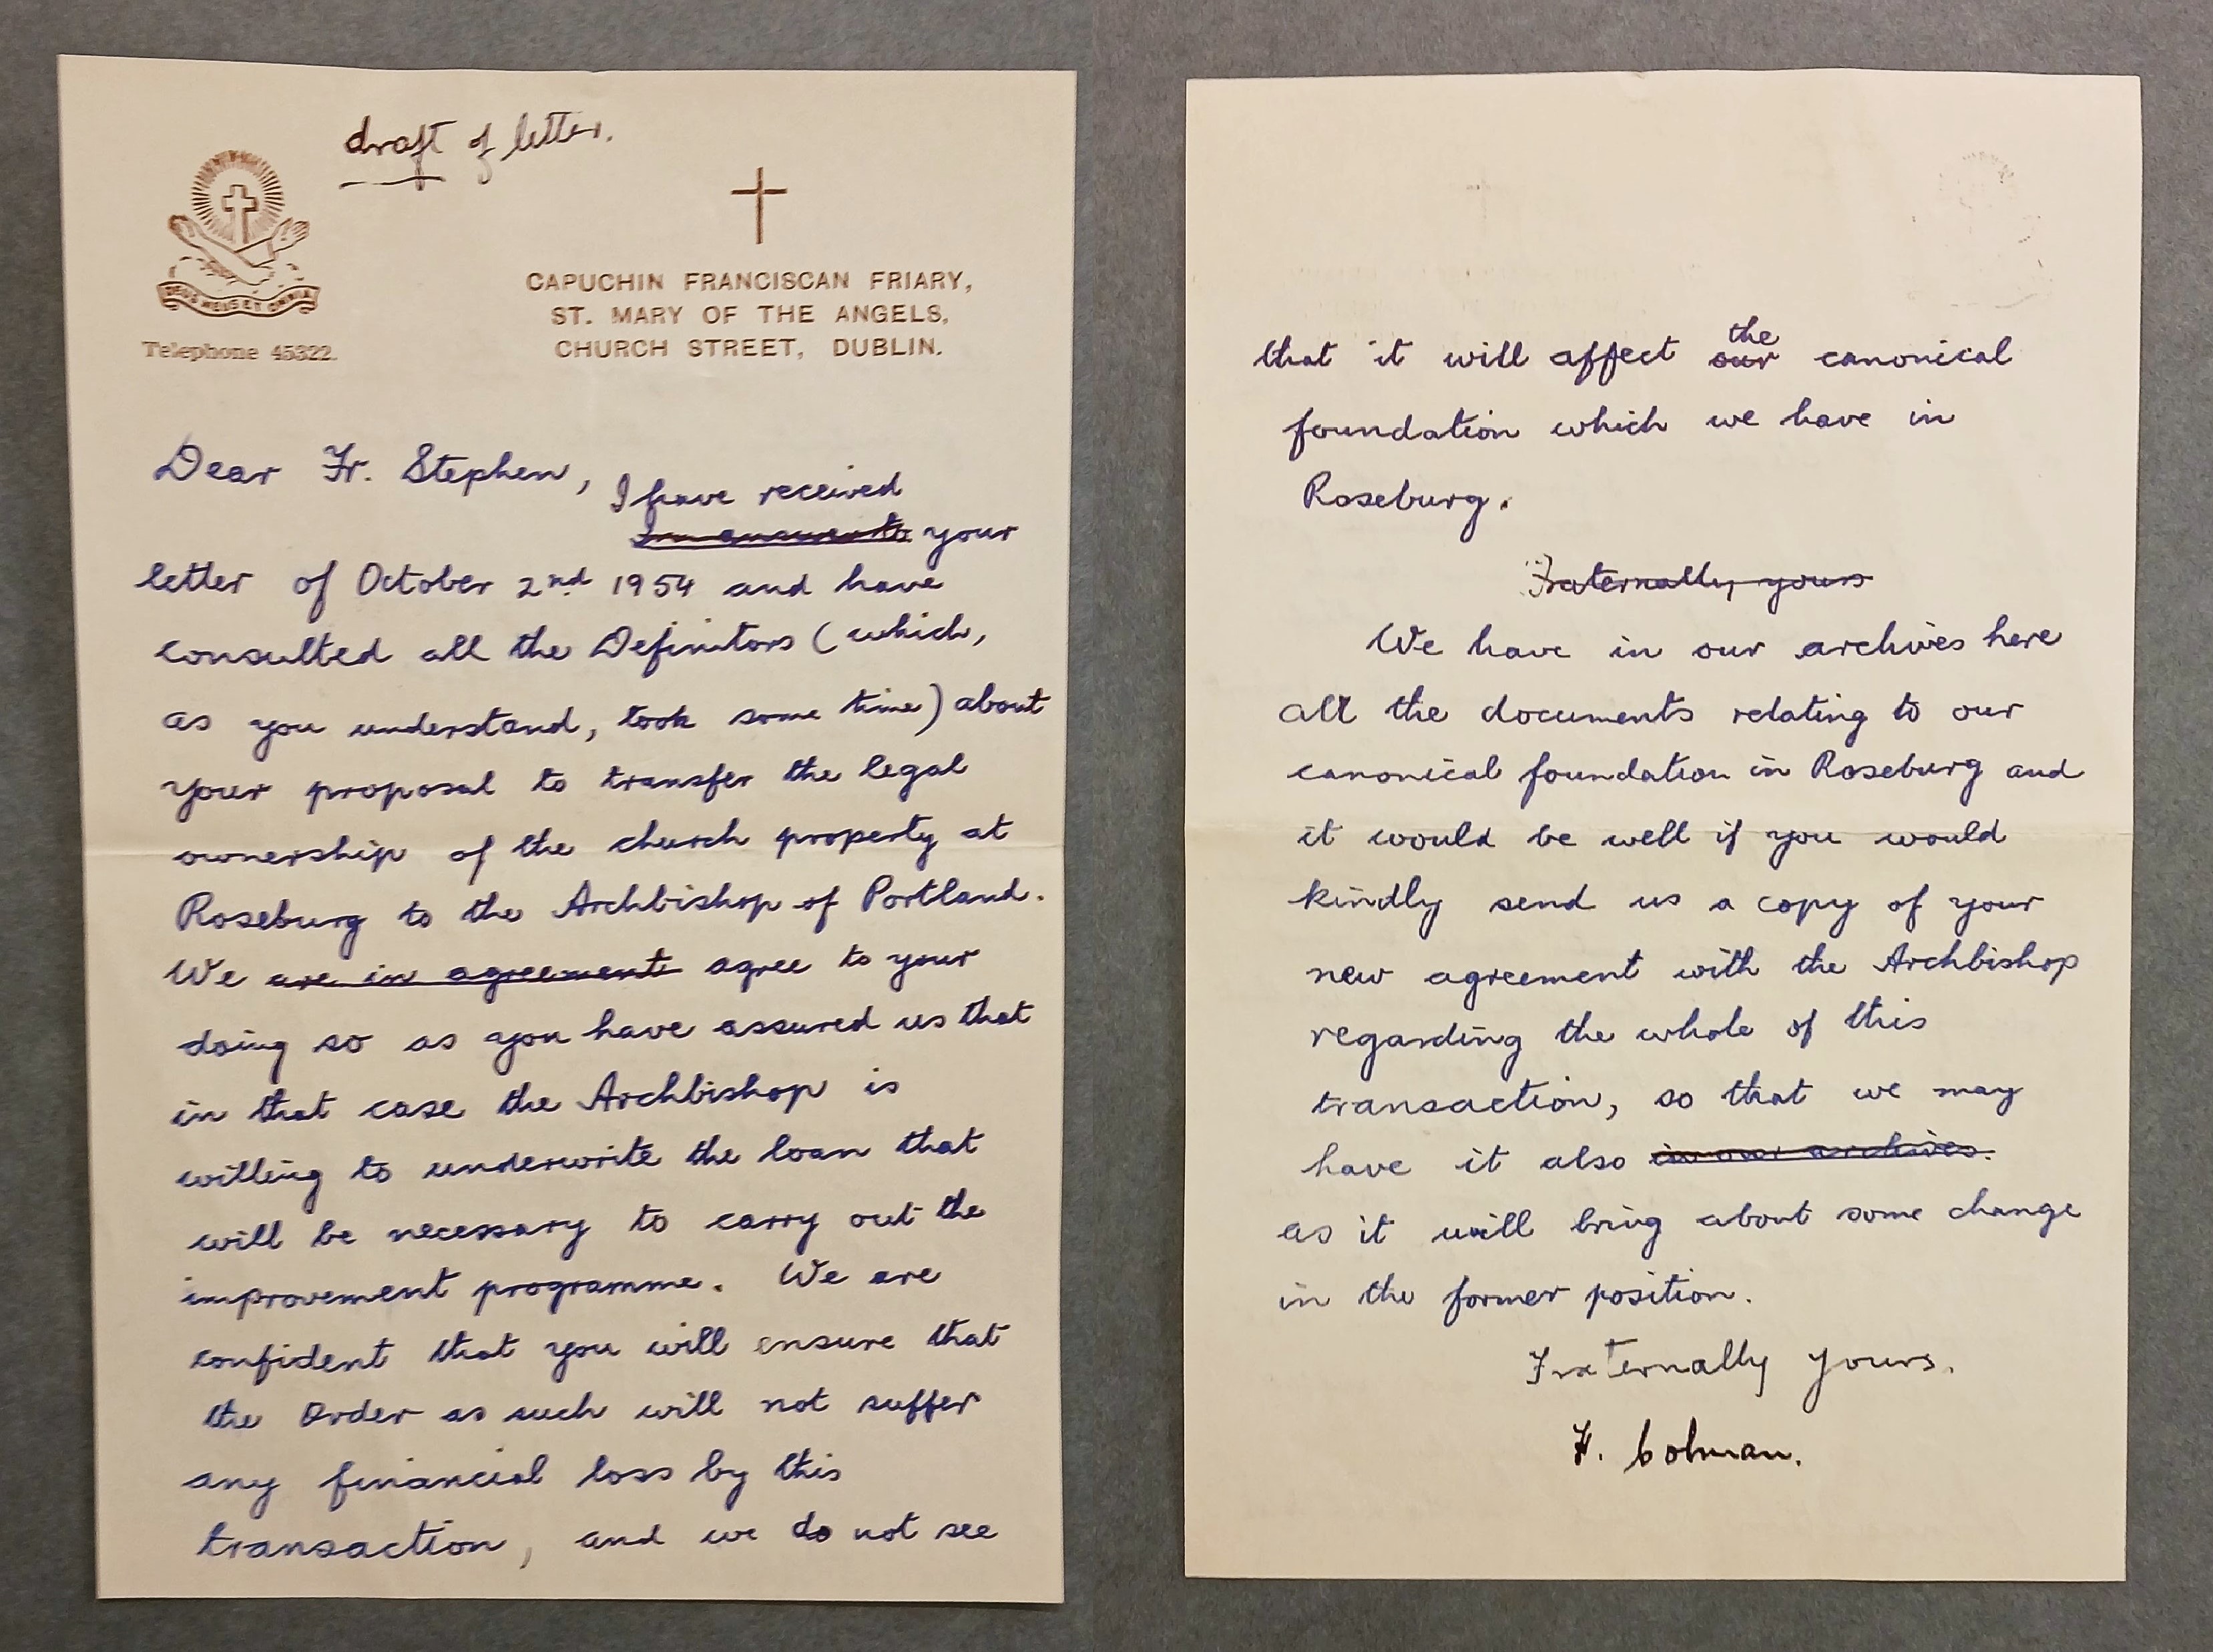 draft of letter.
DEUS MEUS ET OMNIA
Telephone 45322.
CAPUCHIN FRANCISCAN FRIARY,
ST. MARY OF THE ANGELS,
CHURCH STREET, DUBLIN.
Dear Fr. Stephen,
I have received
In answer to your
letter of October 2nd 1954 and have
consulted all the Definitors (which,
as you understand, took some time) about
your proposal to transfer the legal
ownership of the church property at
Roseburg to the Archbishop of Portland.
We are in agreement agree to your
doing so as you have assured us that
in that case the Archbishop is
willing to underwrite the loan that
will be necessary to carry out the
improvement programme. We are
confident that you will ensure that
the Order as such will not suffer
any financial loss by this
transaction, and we do not see
the
that it will affect our canonical
foundation which we have in
Roseburg.
Fraternally yours
We have in our archives here
all the documents relating to our
canonical foundation in Roseburg and
it would be well if you would
kindly send us a copy of your
new agreement with the Archbishop
regarding the whole of this
transaction, so that we may
have it also in our archives.
as it will bring about some change
in the former position.
Fraternally yours.
F. Colman.